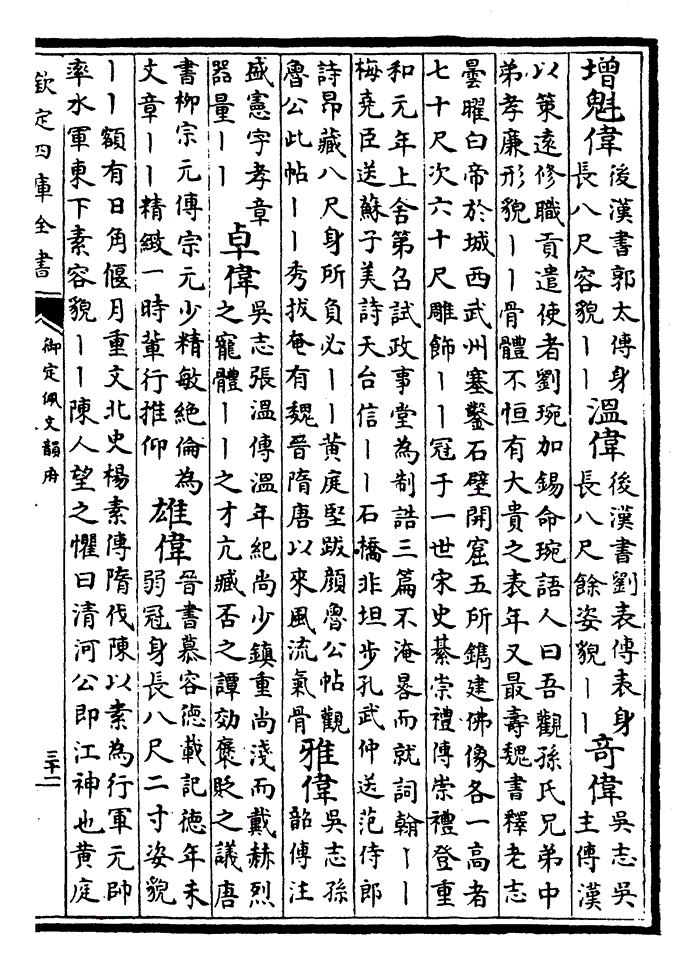 增魁偉
後漢書郭太傳身
長八尺容貌丨丨
溫偉
後漢書劉表傳表身
長八尺餘姿貌丨丨
奇偉
吳志吳
主傳漢
以策遠修職貢遣使者劉琬加錫命琬語人曰吾觀孫氏兄弟中
弟孝廉形貌丨丨骨體不恒有大貴之表年又最壽魏書釋老志
曇曜白帝於城西武州塞鑿石壁開窟五所鐫建佛像各一高者
七十尺次六十尺雕飾丨丨冠于一世宋史綦崇禮傳崇禮登重
和元年上舍第召試政事堂為制誥三篇不淹晷而就詞翰丨丨
梅堯臣送蘇子美詩天台信丨丨石橋非坦步孔武仲送范侍郎
詩昂藏八尺身所負必丨丨黃庭堅跋顏魯公帖觀
魯公此帖丨丨秀拔奄有魏晉隋唐以來風流氣骨
雅偉
吳志孫
韶傳注
盛憲字孝章
器量丨丨
卓偉
吳志張溫傳溫年紀尚少鎮重尚淺而戴赫烈
之寵體丨丨之才亢臧否之譚効褒貶之議唐
書柳宗元傳宗元少精敏絕倫為
文章丨丨精緻一時輩行推仰
雄偉
晉書慕容德載記德年未
弱冠身長八尺二寸姿貌
丨丨額有日角偃月重文北史楊素傳隋伐陳以素為行軍元帥
率水軍東下素容貌丨丨陳人望之懼曰清河公即江神也黃庭
欽定四庫全書
御定佩文韻府
三十二